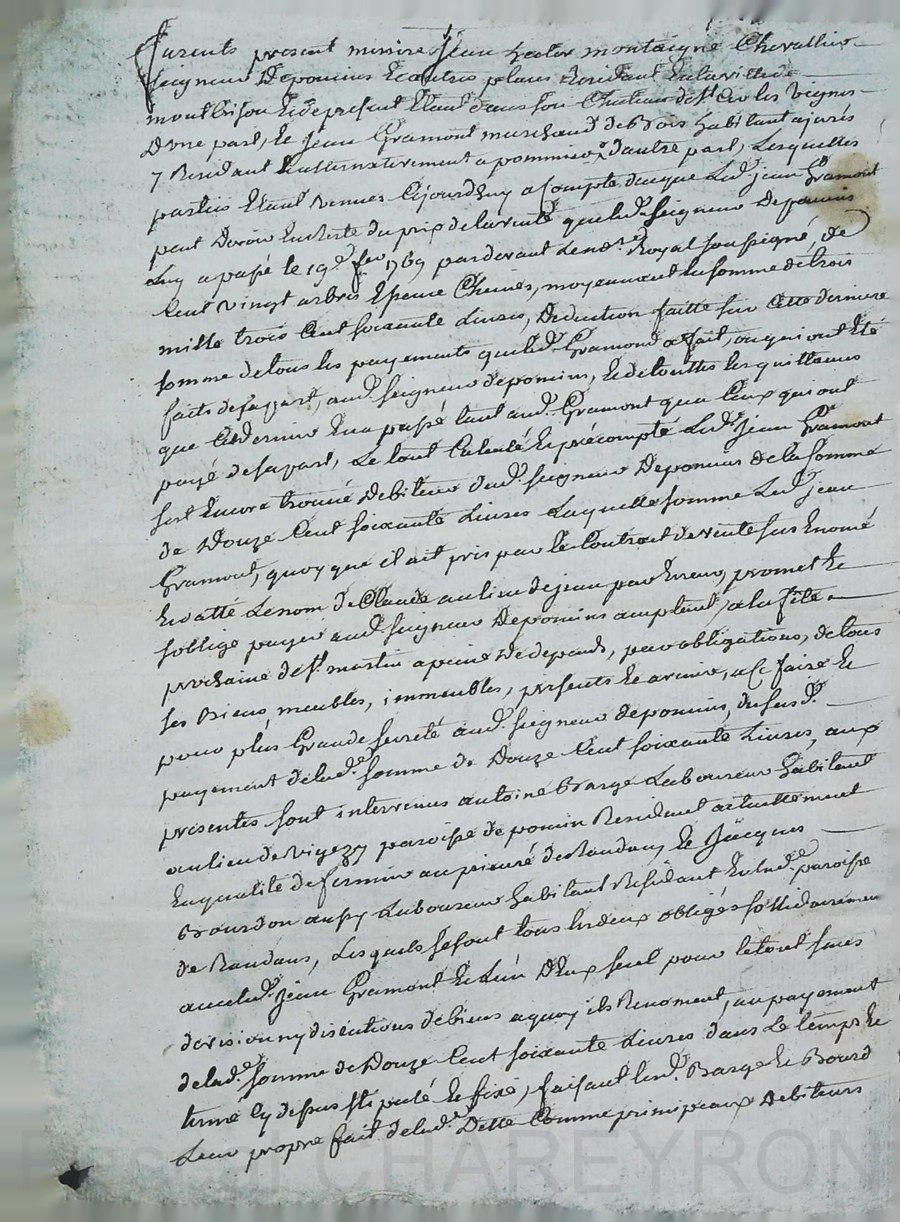 furents present messire Jean hector montaigne Chevallier
seigneur Depomins & autres places Residant En la ville de
montbrison & de present Etant dans son Chateau de St Cir les vignes
D'une part, & Jean Gramont marchand de Bois habitant a jurés
y Residant & alternativement a pommiers d'autre part, Lesquelles
parties Etant venues Cejourd'huy a Compte de ce que Led. jean Gramont
peut Devoir En Reste du prix de la vente que led. Seigneur Depomins
Luy a passé le 19e fer. 1769 pardevant Le no.re Royal soussigné, de
Cent vingt arbres Essence Chenes, moyennant la somme de trois
mille trois Cent soixante Livres, Deduction faitte sur Cette derniere
somme de tous les payements que led. Gramond a fait, ou qui ont Eté
faits de sa part, aud. seigneur depomins, & de touttes les quittances
que Ce dernier En a passé tant aud. Gramont qu'a Ceux qui ont
payé de sa part, Le tout Calculé & précompté Led. Jean Gramont
s'est Encore trouvé Debiteur dud. seigneur Depomins de la somme
de Douze Cent soixante Livres Laquelle somme Led. Jean
Gramont, quoy que il ait pris par le Contrat de vente sus Enomé
& datté Le nom de Claude au lieu de jean par Erreur, promet &
s'oblige payer aud. seigneur Depomins acceptant, a la fête
prochaine de St. martin a peine De depends, par obligations, de tous
ses Biens, meubles, immeubles, presents & avenir, & a Ce faire &
pour plus Grande sureté aud. seigneur depomins, de sesd.
payement de lad. somme de Douze Cent soixante Livres, aux
presentes sont intervenus antoine Barge Laboureur habitant
au lieu de Vigezy paroisse de pomin Residant actuellement
En qualité de fermier au prieuré de Randans, & Jacques
Bourdon aussy Laboureur habitant Residant En lad. paroisse
de Randans, Lesquels se sont tous les deux obligés sollidairement
avec led. Jean Gramont & L'un D'Eux seul pour le tout sans
division ny discutions de biens a quoy ils Renoncent, au payement
de lad. somme de Douze Cent soixante Livres dans Le temps &
terme Cy dessus stipulé & fixé, faisant lesd. Barge & Bourd
Leur propre fait de lad. Dette Comme principaux Debiteurs
CHAREYRON